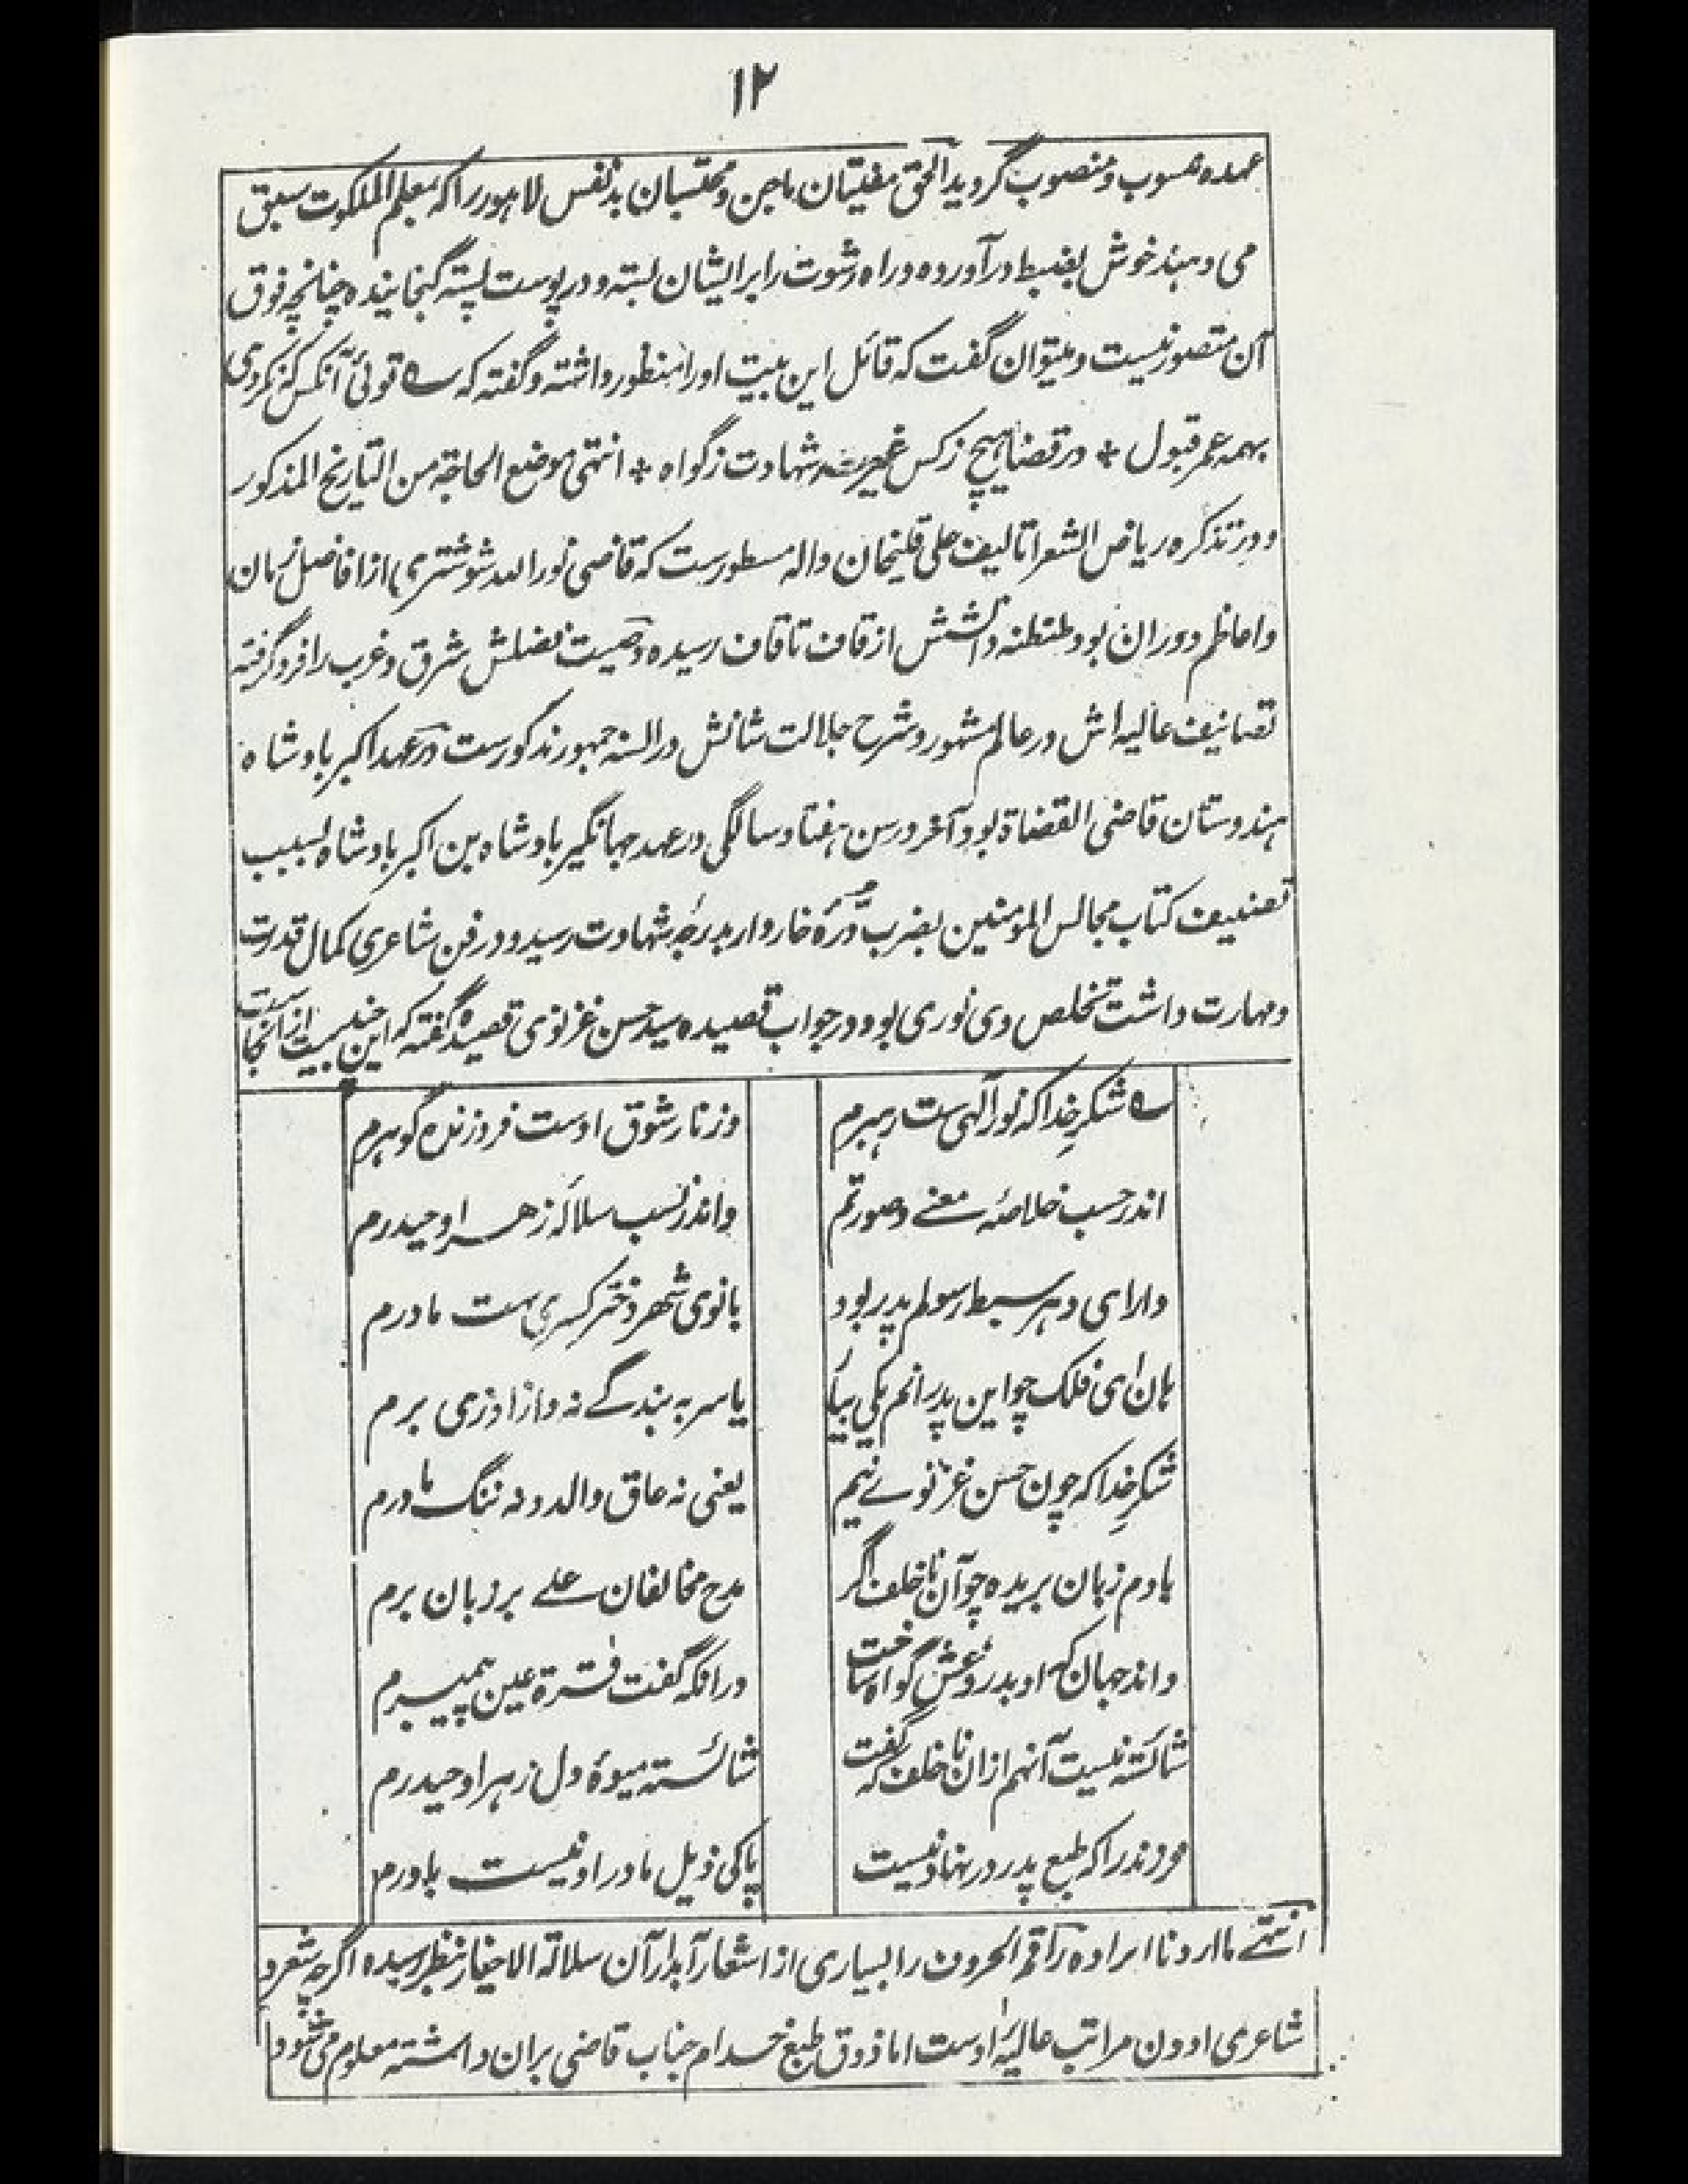 ۱۲
عهده منسوب و منصوب گردید الحق مفتیان ماجن و محتسبان بدنفس لاهور را که بمعلم الملکوت سبق
می دهند خوش بضبط درآورده و راه رشوت را برایشان بسته و در پوست پسته گنجانیده چنانچه فوق
آن متصور نیست و میتوان گفت که قائل این بیت او را منظور داشته و گفته که ؎ توئی آنکس که نکردی
بهمه عمر قبول * در قضا هیچ ز کس غیر شهادت ز گواه * انتهی موضع الحاجة من التاریخ المذکور
و در تذکره ریاض الشعرا تالیف علی قلیخان واله مسطورست که قاضی نور الله شوشتری از افاضل زمان
و اعاظم دوران بود طنطنه دانشش از قاف تا قاف رسیده و صیت فضلش شرق و غرب را فرو گرفته
تصانیف عالیه اش در عالم مشهور و شرح جلالت شانش در السنه جمهور مذکورست در عهد اکبر بادشاه
هندوستان قاضی القضاة بود و آخر در سن هفتاد سالگی در عهد جهانگیر بادشاه بن اکبر بادشاه بسبب
تصنیف کتاب مجالس المومنین بضرب دره خاردار بدرجه شهادت رسید و در فن شاعری کمال قدرت
و مهارت داشت تخلص وی نوری بود و در جواب قصیده سید حسن غزنوی قصیده گفته که این چند بیت از آنجاست
؎ شکر خدا که نور آلهی ست رهبرم
وز نار شوق اوست فروزنده گوهرم
اندر حسب خلاصهٔ معنے و صورتم
واندر نسب سلالهٔ زهرا و حیدرم
دارای دهر سبط رسولم پدر بود
بانوی شهر دختر کسری ست مادرم
هان ای فلک چو این پدرانم یکی بیا
یا سر به بندگے نه و آزاد زی برم
شکر خدا که چون حسن غزنوے نیم
یعنی نه عاق والد و نه ننگ مادرم
بادم زبان بریده چو آن ناخلف اگر
مدح مخالفان علے بر زبان برم
واند جهان که او بدروغش گواه ساخت
در آنکه گفت قرة عین پیمبرم
شائسته نیست آنهم از ان ناخلف که گفت
شائسته میوهٔ دل زهرا و حیدرم
فرزند را که طبع پدر در نهاد نیست
پاکی ذیل مادر او نیست باورم
انتهے ما اردنا ایراده راقم الحروف را بسیاری از اشعار آبدار آن سلالة الاخیار بنظر رسیده اگرچه شعر و
شاعری او دون مراتب عالیه اوست اما ذوق طبع خدام جناب قاضی بران داشته معلوم می شود